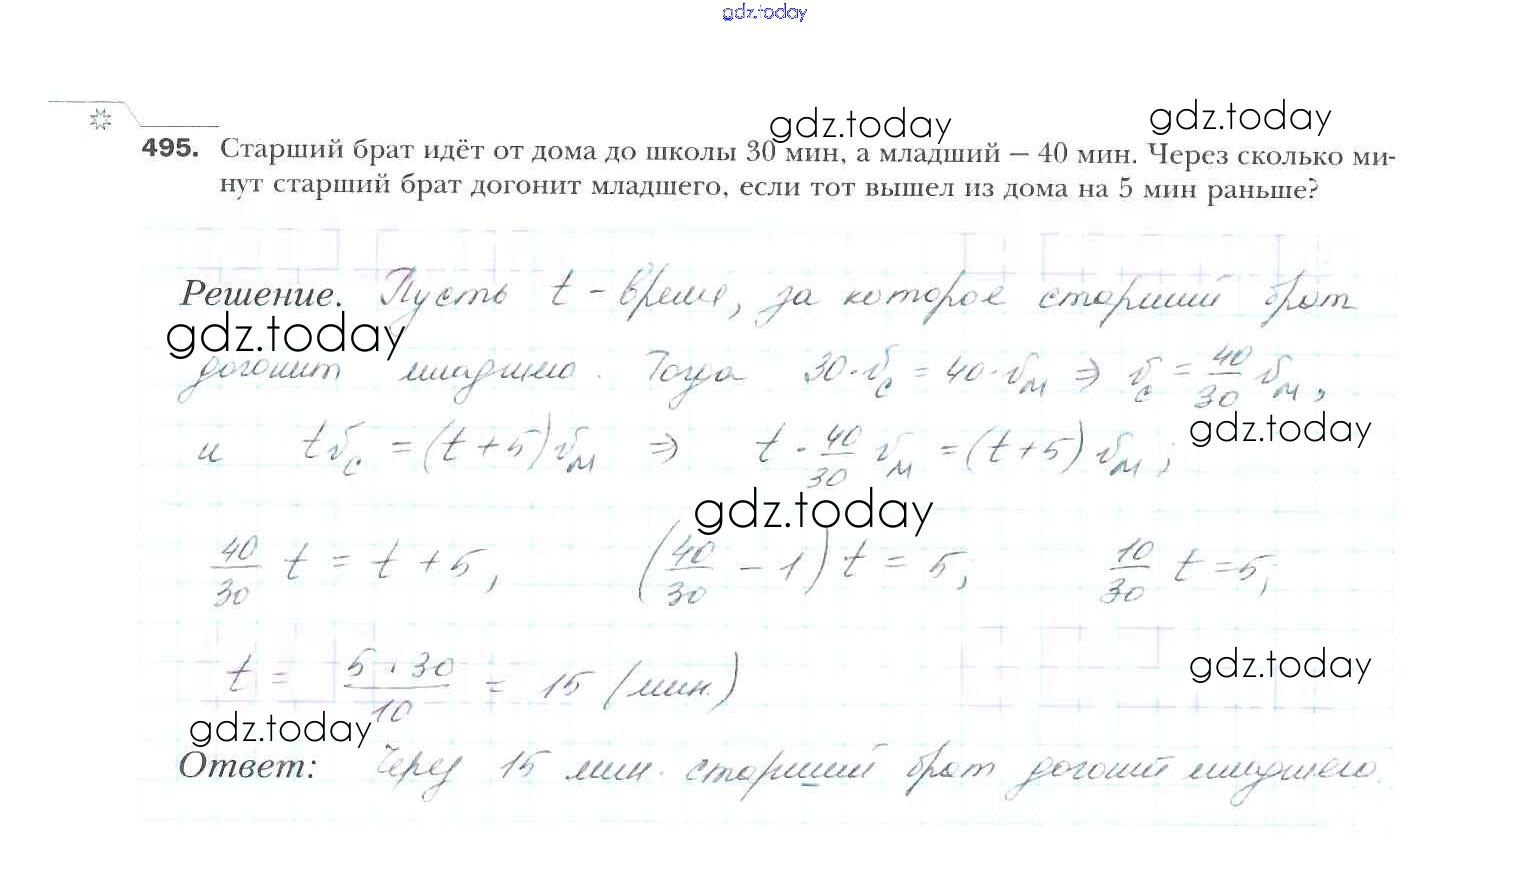 gdz.today
gdz.today
gdz.today
495. Старший брат идёт от дома до школы 30 мин, а младший – 40 мин. Через сколько ми-
нут старший брат догонит младшего, если тот вышел из дома на 5 мин раньше?
Решение. Пусть t – время, за которое старший брат
gdz.today
догонит младшего. Тогда 30·v_с = 40·v_м ⇒ v_с = 40/30 v_м,
gdz.today
и t v_с = (t+5) v_м ⇒ t · 40/30 v_м = (t+5) v_м;
gdz.today
40/30 t = t + 5, (40/30 – 1) t = 5; 10/30 t = 5;
gdz.today
t = 5·30/10 = 15 (мин.)
gdz.today
Ответ: Через 15 мин. старший брат догонит младшего.